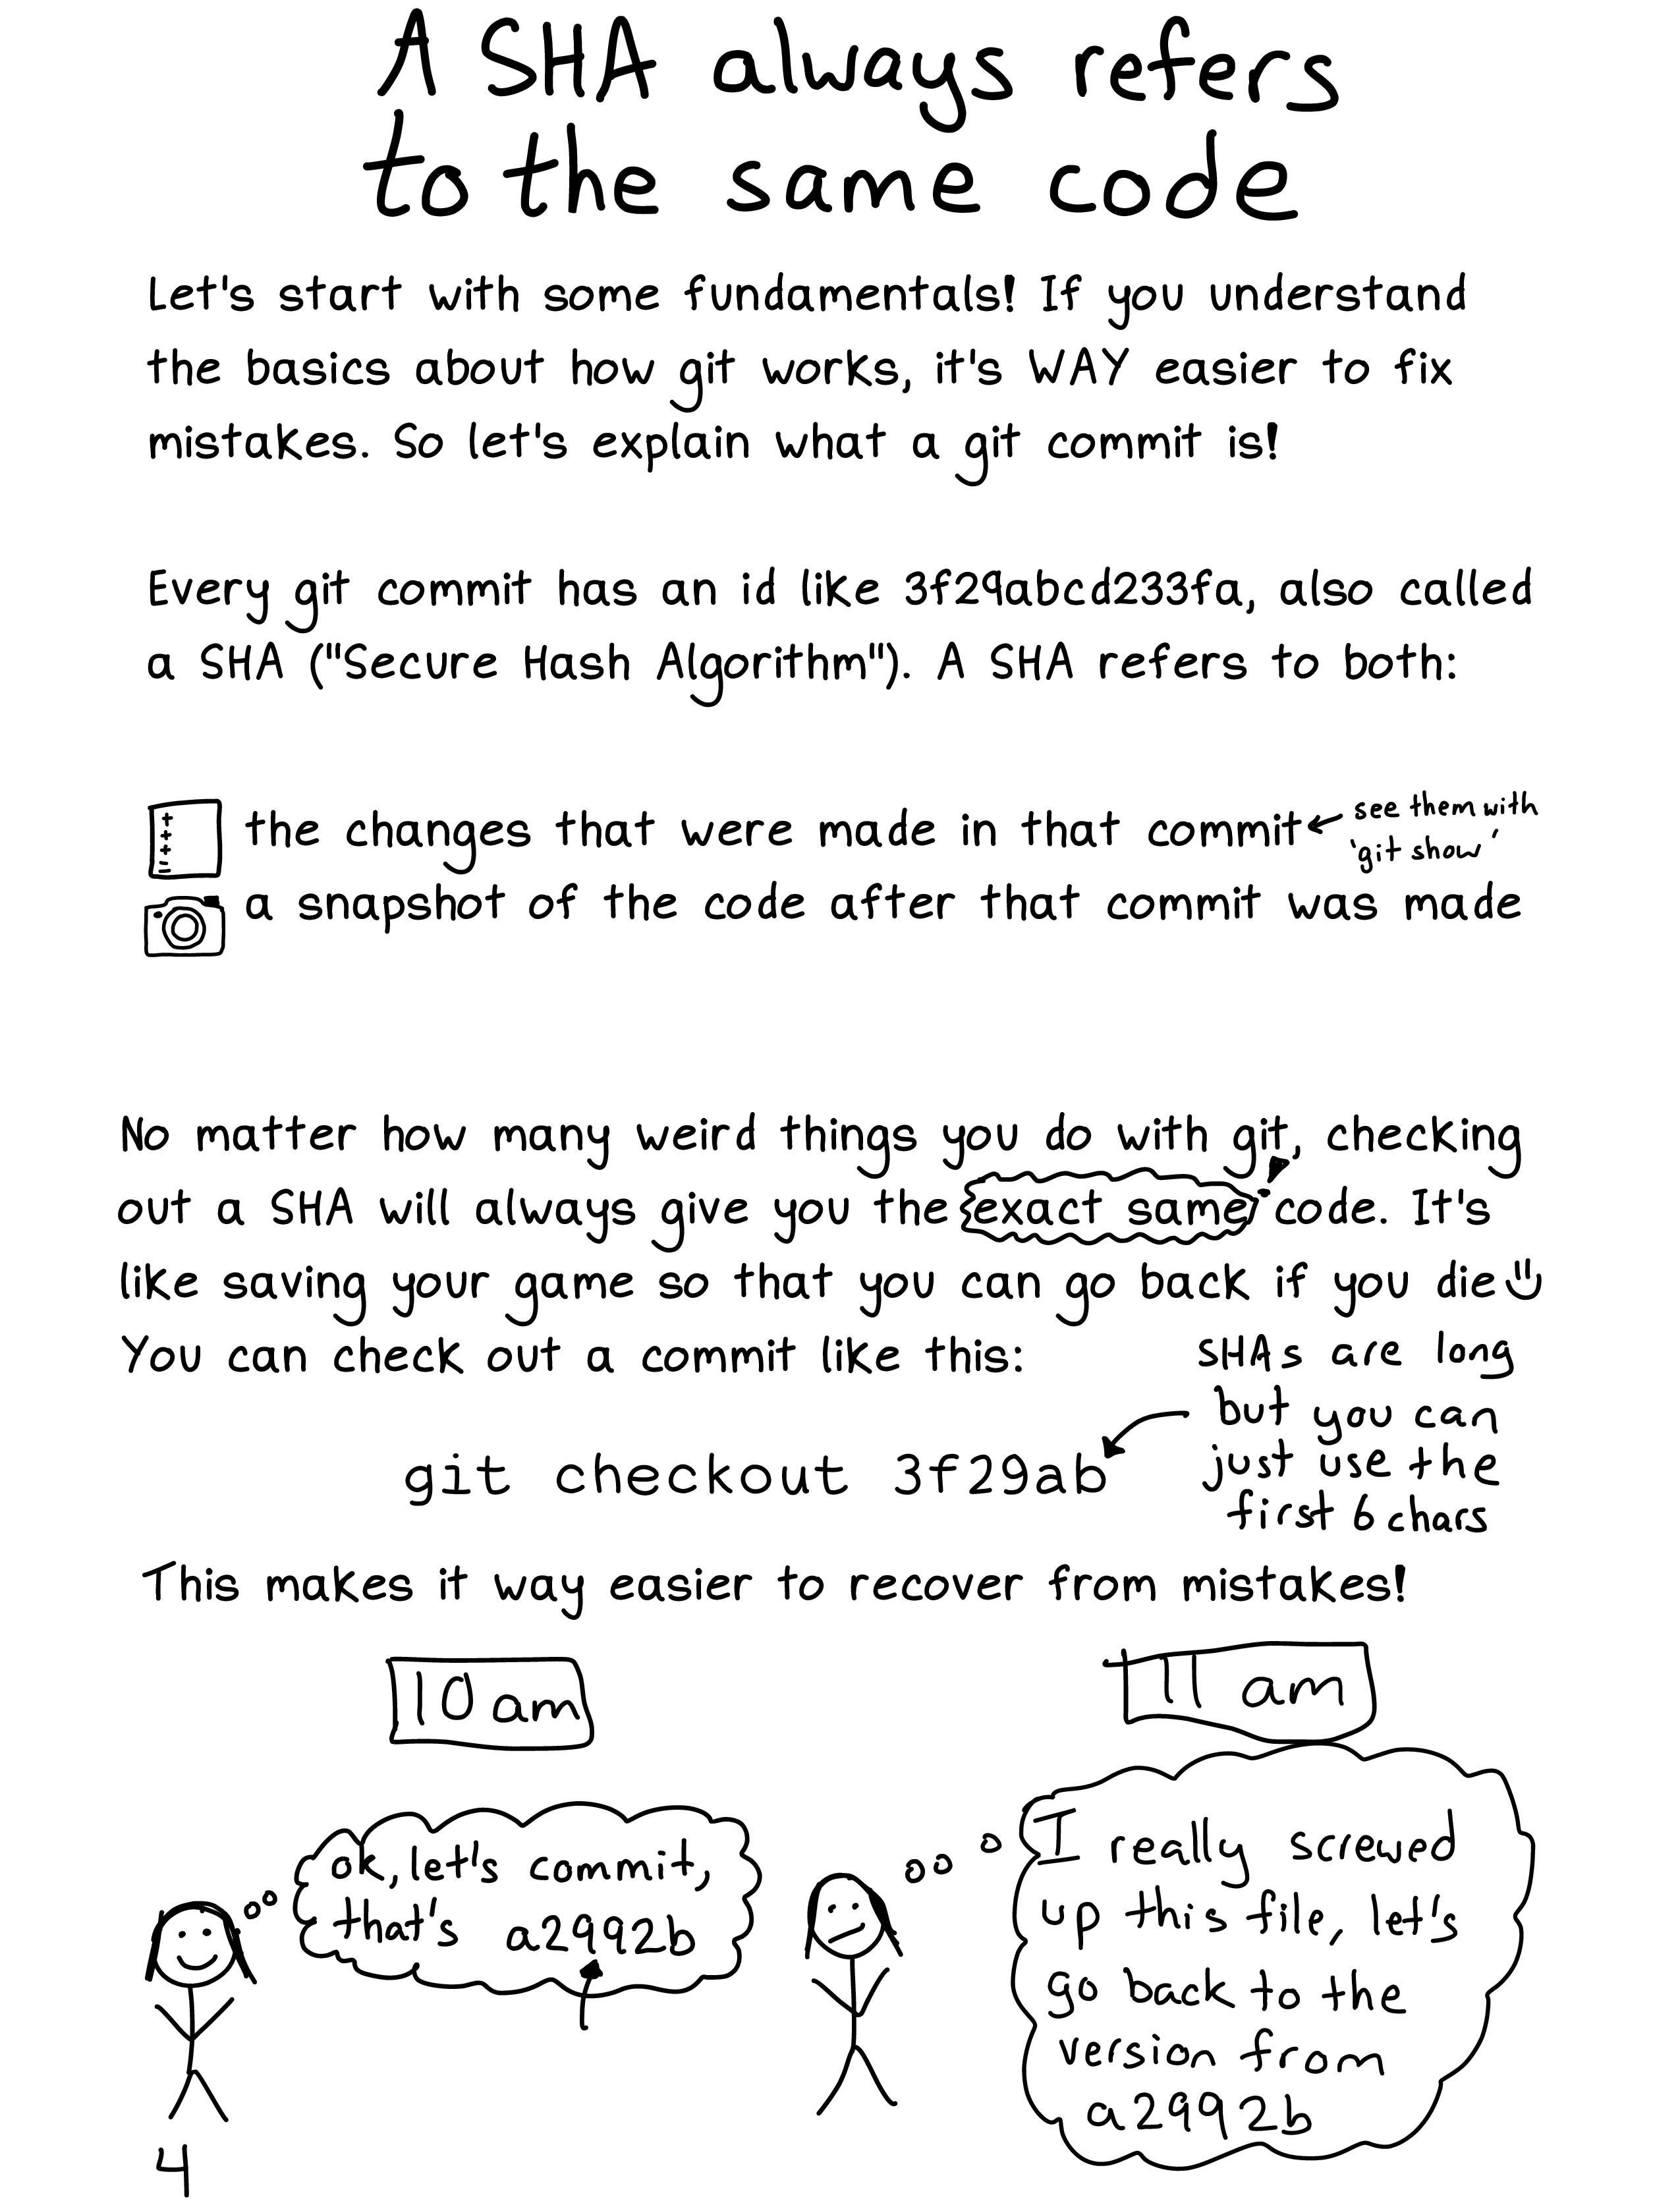 A SHA always refers
to the same code
Let's start with some fundamentals! If you understand
the basics about how git works, it's WAY easier to fix
mistakes. So let's explain what a git commit is!
Every git commit has an id like 3f29abcd233fa, also called
a SHA ("Secure Hash Algorithm"). A SHA refers to both:
+
+
+
=
the changes that were made in that commit
see them with
'git show'
a snapshot of the code after that commit was made
No matter how many weird things you do with git, checking
out a SHA will always give you the exact same! code. It's
like saving your game so that you can go back if you die
You can check out a commit like this:
SHAs are long
but you can
just use the
first 6 chars
git checkout 3f29ab
This makes it way easier to recover from mistakes!
10 am
ok, let's commit,
that's a2992b
11 am
I really screwed
up this file, let's
go back to the
version from
a2992b
4